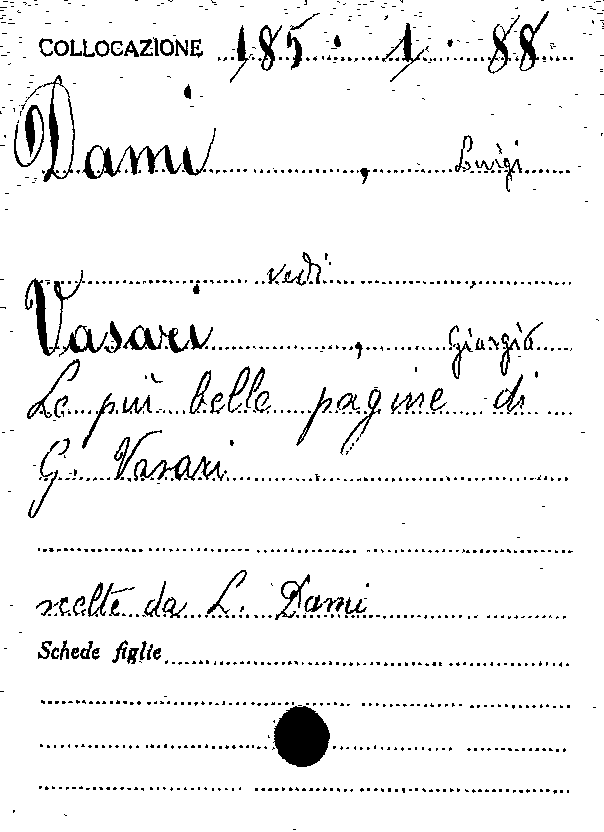 COLLOCAZIONE 185. 1. 88
Dami, Luigi
vedi
Vasari, Giorgio
Le più belle pagine di
G. Vasari
scelte da L. Dami
Schede figlie